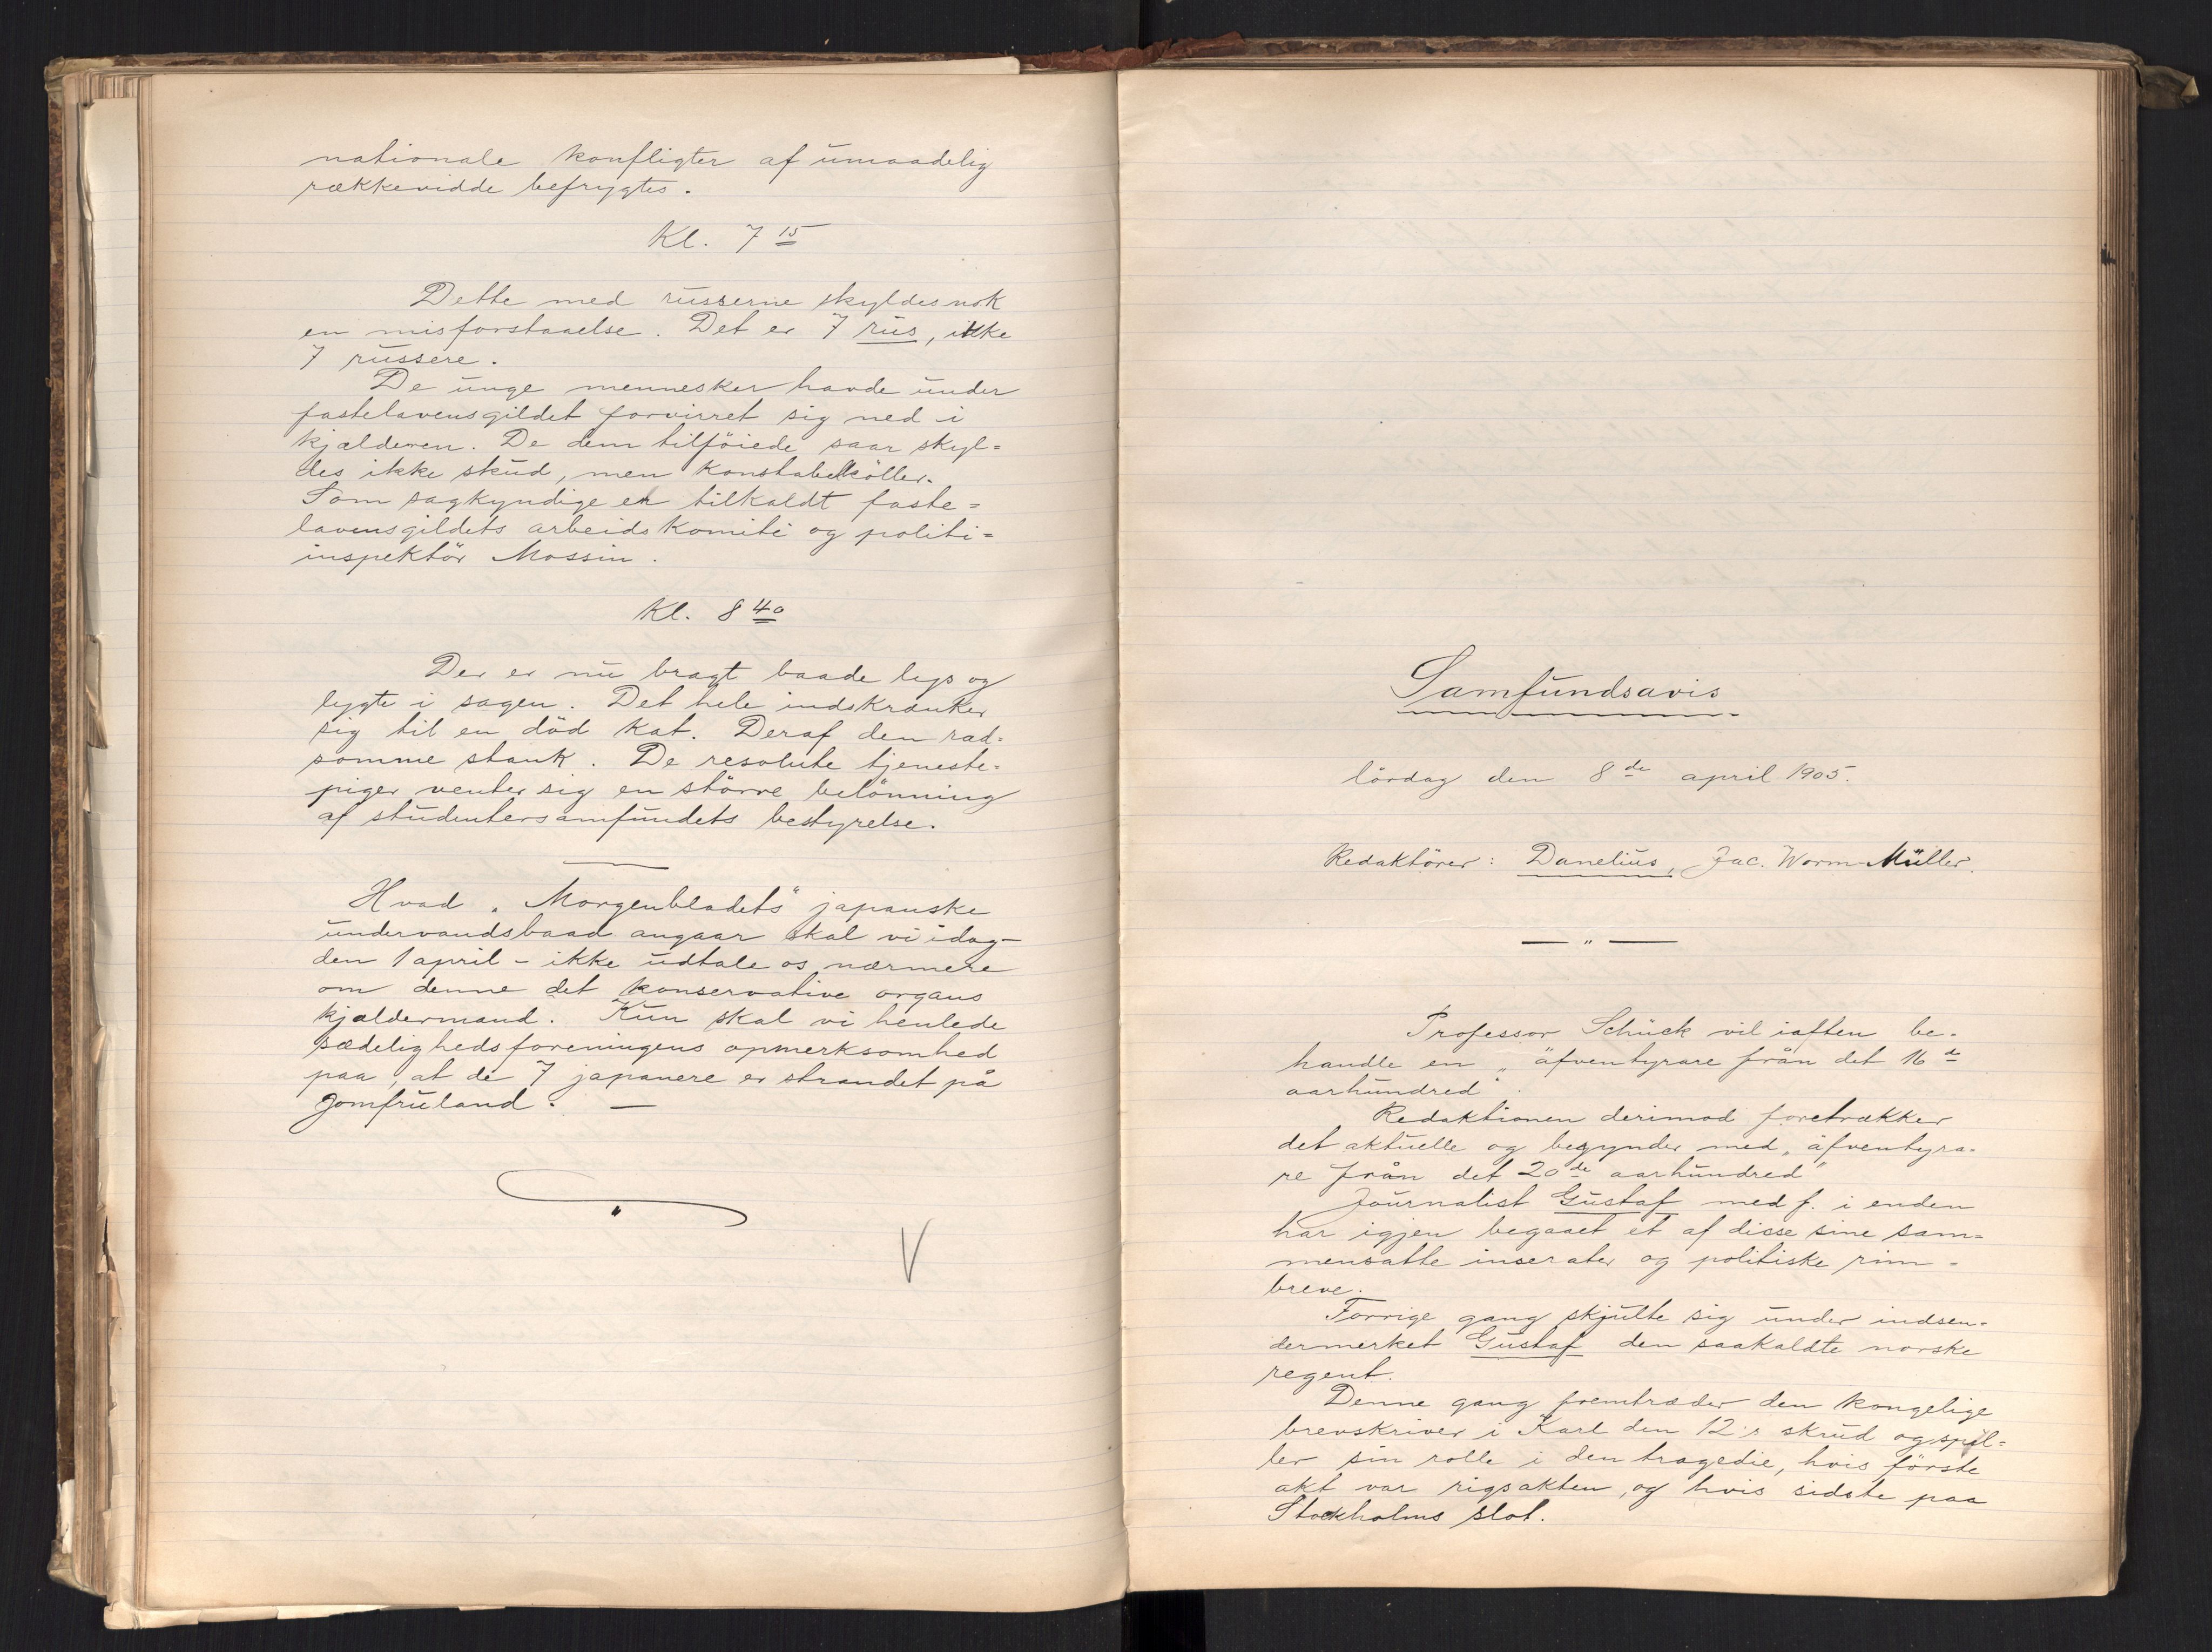 nationale konfligter af umaadelig
rækkevidde befrygtes.
Kl. 7 15
Dette med russerne skyldes nok
en misforstaaelse. Det er 7 rus, ikke
7 russere.
De unge mennesker havde under
fastelavensgildet forvirret sig ned i
kjælderen. De dem tilføiede saar skyl=
des ikke skud, men konstabelkøller.
Som sagkyndige er tilkaldt faste=
lavensgildets arbeidskomité og politi=
inspektør Mossin.
Kl. 8 40
Der er nu bragt baade lys og
lygte i sagen. Det hele indskrænker
sig til en død kat. Deraf den ræd=
somme stank. De resolute tjeneste=
piger venter sig en større belønning
af studentersamfundets bestyrelse.
Hvad "Morgenbladets" japanske
undervandsbaad angaar skal vi idag -
den 1 april - ikke udtale os nærmere
om denne det konservative organs
kjældermand. Kun skal vi henlede
sædelighedsforeningens opmerksomhed
paa, at de 7 japanere er strandet på
Jomfruland. —
V
Samfundsavis
lørdag den 8de april 1905.
Redaktører: Danelius, Jac. Worm-Müller.
— " —
Professor Schück vil iaften be=
handle en "äfventyrare från det 16de
aarhundred".
Redaktionen derimod foretrækker
det aktuelle og begynder med "äfventyra=
re från det 20de aarhundred"
Journalist Gustaf med f. i enden
har igjen begaaet et af disse sine sam=
mensatte inserater og politiske rim=
breve.
Forrige gang skjulte sig under indsen=
dermerket Gustaf den saakaldte norske
regent.
Denne gang fremtræder den kongelige
brevskriver i Karl den 12's skrud og spil=
ler sin rolle i den tragedie, hvis første
akt var rigsakten, og hvis sidste paa
Stockholms slot.